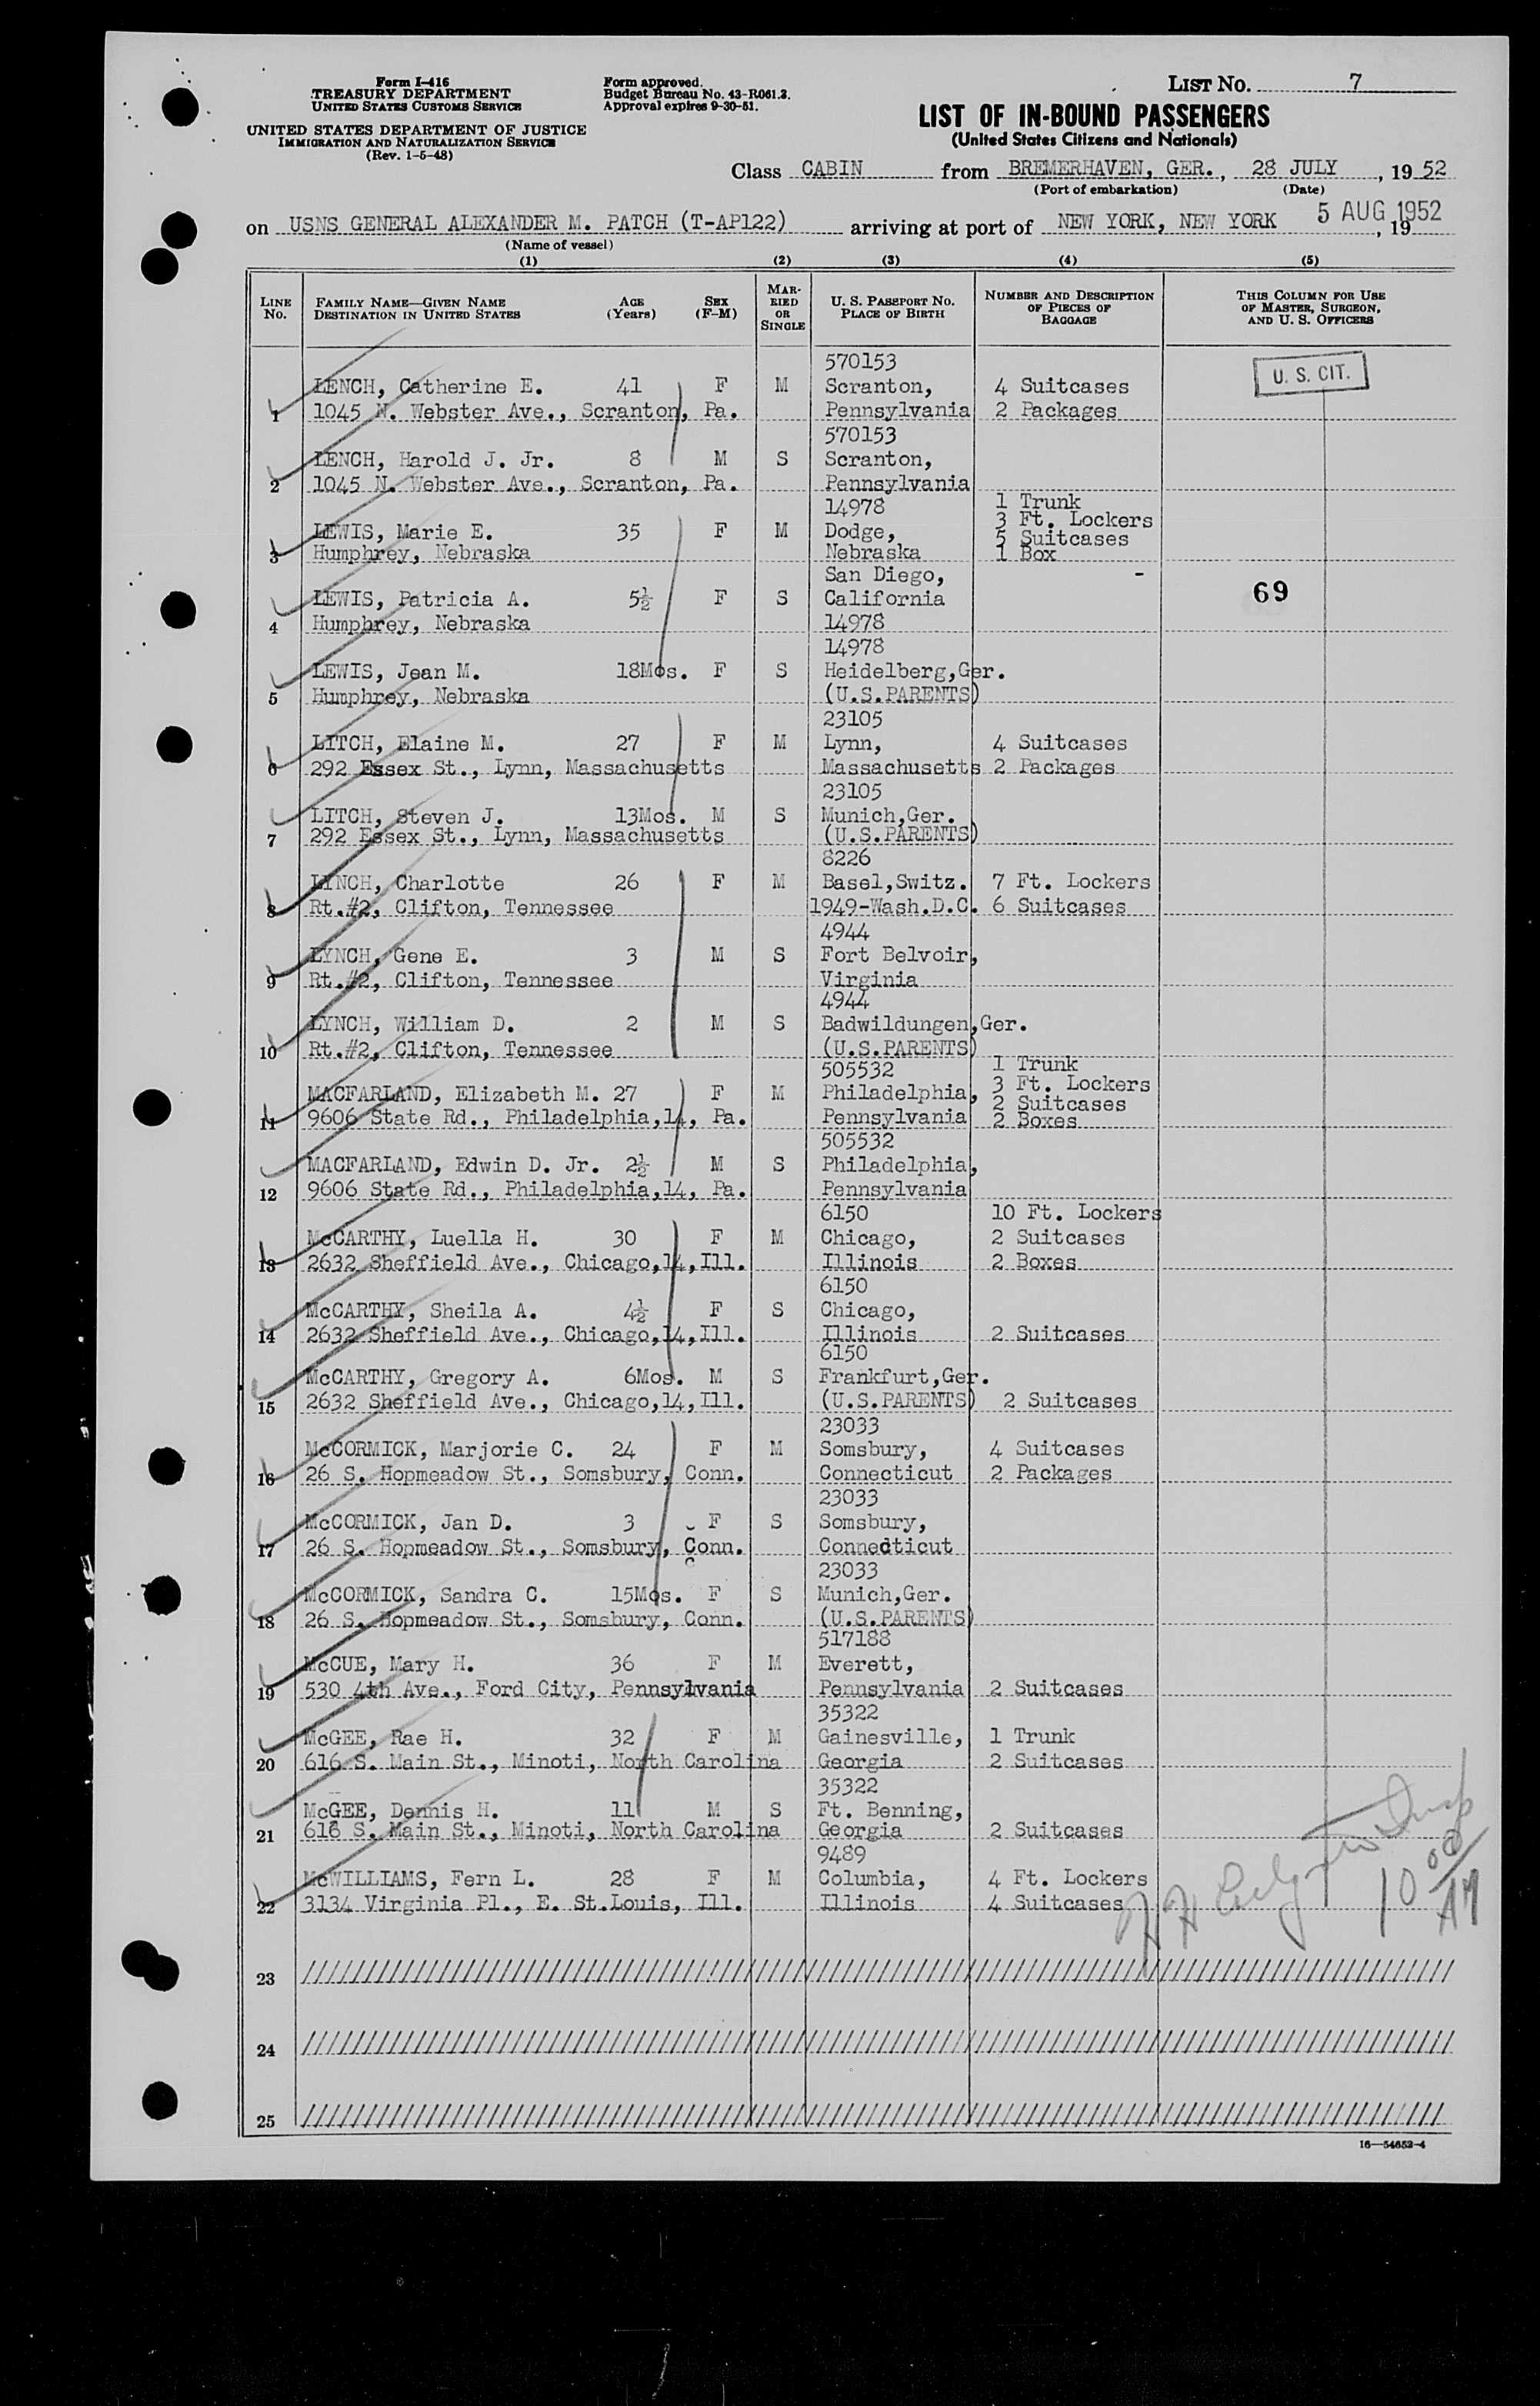 Form I-416
TREASURY DEPARTMENT
UNITED STATES CUSTOMS SERVICE
UNITED STATES DEPARTMENT OF JUSTICE
IMMIGRATION AND NATURALIZATION SERVICE
(Rev. 1-5-48)
Form approved.
Budget Bureau No. 43-R061.3.
Approval expires 9-30-51.
LIST No. 7
LIST OF IN-BOUND PASSENGERS
(United States Citizens and Nationals)
Class CABIN from BREMERHAVEN, GER., 28 JULY, 1952
(Port of embarkation) (Date)
on USNS GENERAL ALEXANDER M. PATCH (T-AP122) arriving at port of NEW YORK, NEW YORK 5 AUG 1952, 19
(Name of vessel)
(1) (2) (3) (4) (5)
LINE No. FAMILY NAME—GIVEN NAME DESTINATION IN UNITED STATES AGE (Years) SEX (F-M) MARRIED OR SINGLE U. S. PASSPORT No. PLACE OF BIRTH NUMBER AND DESCRIPTION OF PIECES OF BAGGAGE THIS COLUMN FOR USE OF MASTER, SURGEON, AND U. S. OFFICERS
570153
LENCH, Catherine E. 41 F M Scranton, 4 Suitcases U. S. CIT.
1 1045 N. Webster Ave., Scranton, Pa. Pennsylvania 2 Packages
570153
LENCH, Harold J. Jr. 8 M S Scranton,
2 1045 N. Webster Ave., Scranton, Pa. Pennsylvania
14978 1 Trunk
3 Ft. Lockers
LEWIS, Marie E. 35 F M Dodge, 5 Suitcases
3 Humphrey, Nebraska Nebraska 1 Box
San Diego, -
LEWIS, Patricia A. 5½ F S California 69
4 Humphrey, Nebraska 14978
14978
LEWIS, Jean M. 18Mos. F S Heidelberg,Ger.
5 Humphrey, Nebraska (U.S.PARENTS)
23105
LITCH, Elaine M. 27 F M Lynn, 4 Suitcases
6 292 Essex St., Lynn, Massachusetts Massachusetts 2 Packages
23105
LITCH, Steven J. 13Mos. M S Munich,Ger.
7 292 Essex St., Lynn, Massachusetts (U.S.PARENTS)
8226
LYNCH, Charlotte 26 F M Basel,Switz. 7 Ft. Lockers
8 Rt.#2, Clifton, Tennessee 1949-Wash.D.C. 6 Suitcases
4944
LYNCH, Gene E. 3 M S Fort Belvoir,
9 Rt.#2, Clifton, Tennessee Virginia
4944
LYNCH, William D. 2 M S Badwildungen,Ger.
10 Rt.#2, Clifton, Tennessee (U.S.PARENTS)
505532 1 Trunk
3 Ft. Lockers
MACFARLAND, Elizabeth M. 27 F M Philadelphia, 2 Suitcases
11 9606 State Rd., Philadelphia,14, Pa. Pennsylvania 2 Boxes
505532
MACFARLAND, Edwin D. Jr. 2½ M S Philadelphia,
12 9606 State Rd., Philadelphia,14, Pa. Pennsylvania
6150 10 Ft. Lockers
McCARTHY, Luella H. 30 F M Chicago, 2 Suitcases
13 2632 Sheffield Ave., Chicago,14,Ill. Illinois 2 Boxes
6150
McCARTHY, Sheila A. 4½ F S Chicago,
14 2632 Sheffield Ave., Chicago,14,Ill. Illinois 2 Suitcases
6150
McCARTHY, Gregory A. 6Mos. M S Frankfurt,Ger.
15 2632 Sheffield Ave., Chicago,14,Ill. (U.S.PARENTS) 2 Suitcases
23033
McCORMICK, Marjorie C. 24 F M Somsbury, 4 Suitcases
16 26 S. Hopmeadow St., Somsbury, Conn. Connecticut 2 Packages
23033
McCORMICK, Jan D. 3 F S Somsbury,
17 26 S. Hopmeadow St., Somsbury, Conn. Connecticut
23033
McCORMICK, Sandra C. 15Mos. F S Munich,Ger.
18 26 S. Hopmeadow St., Somsbury, Conn. (U.S.PARENTS)
517188
McCUE, Mary H. 36 F M Everett,
19 530 4th Ave., Ford City, Pennsylvania Pennsylvania 2 Suitcases
35322
McGEE, Rae H. 32 F M Gainesville, 1 Trunk
20 616 S. Main St., Minoti, North Carolina Georgia 2 Suitcases
35322
McGEE, Dennis H. 11 M S Ft. Benning,
21 616 S. Main St., Minoti, North Carolina Georgia 2 Suitcases
9489
McWILLIAMS, Fern L. 28 F M Columbia, 4 Ft. Lockers
22 3134 Virginia Pl., E. St.Louis, Ill. Illinois 4 Suitcases
10 00 AM
23
24
25
16—54652-4